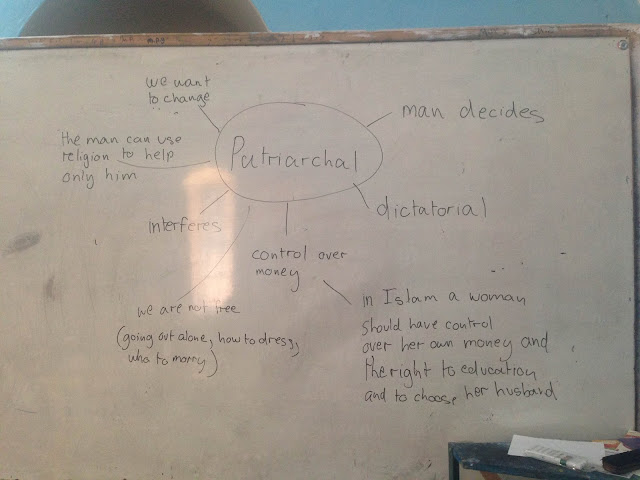 we want
to change
man decides
the man can use
religion to help
only him
Patriarchal
dictatorial
interferes
control over
money
we are not free
(going out alone, how to dress,
who to marry)
in Islam a woman
should have control
over her own money and
the right to education
and to choose her husband